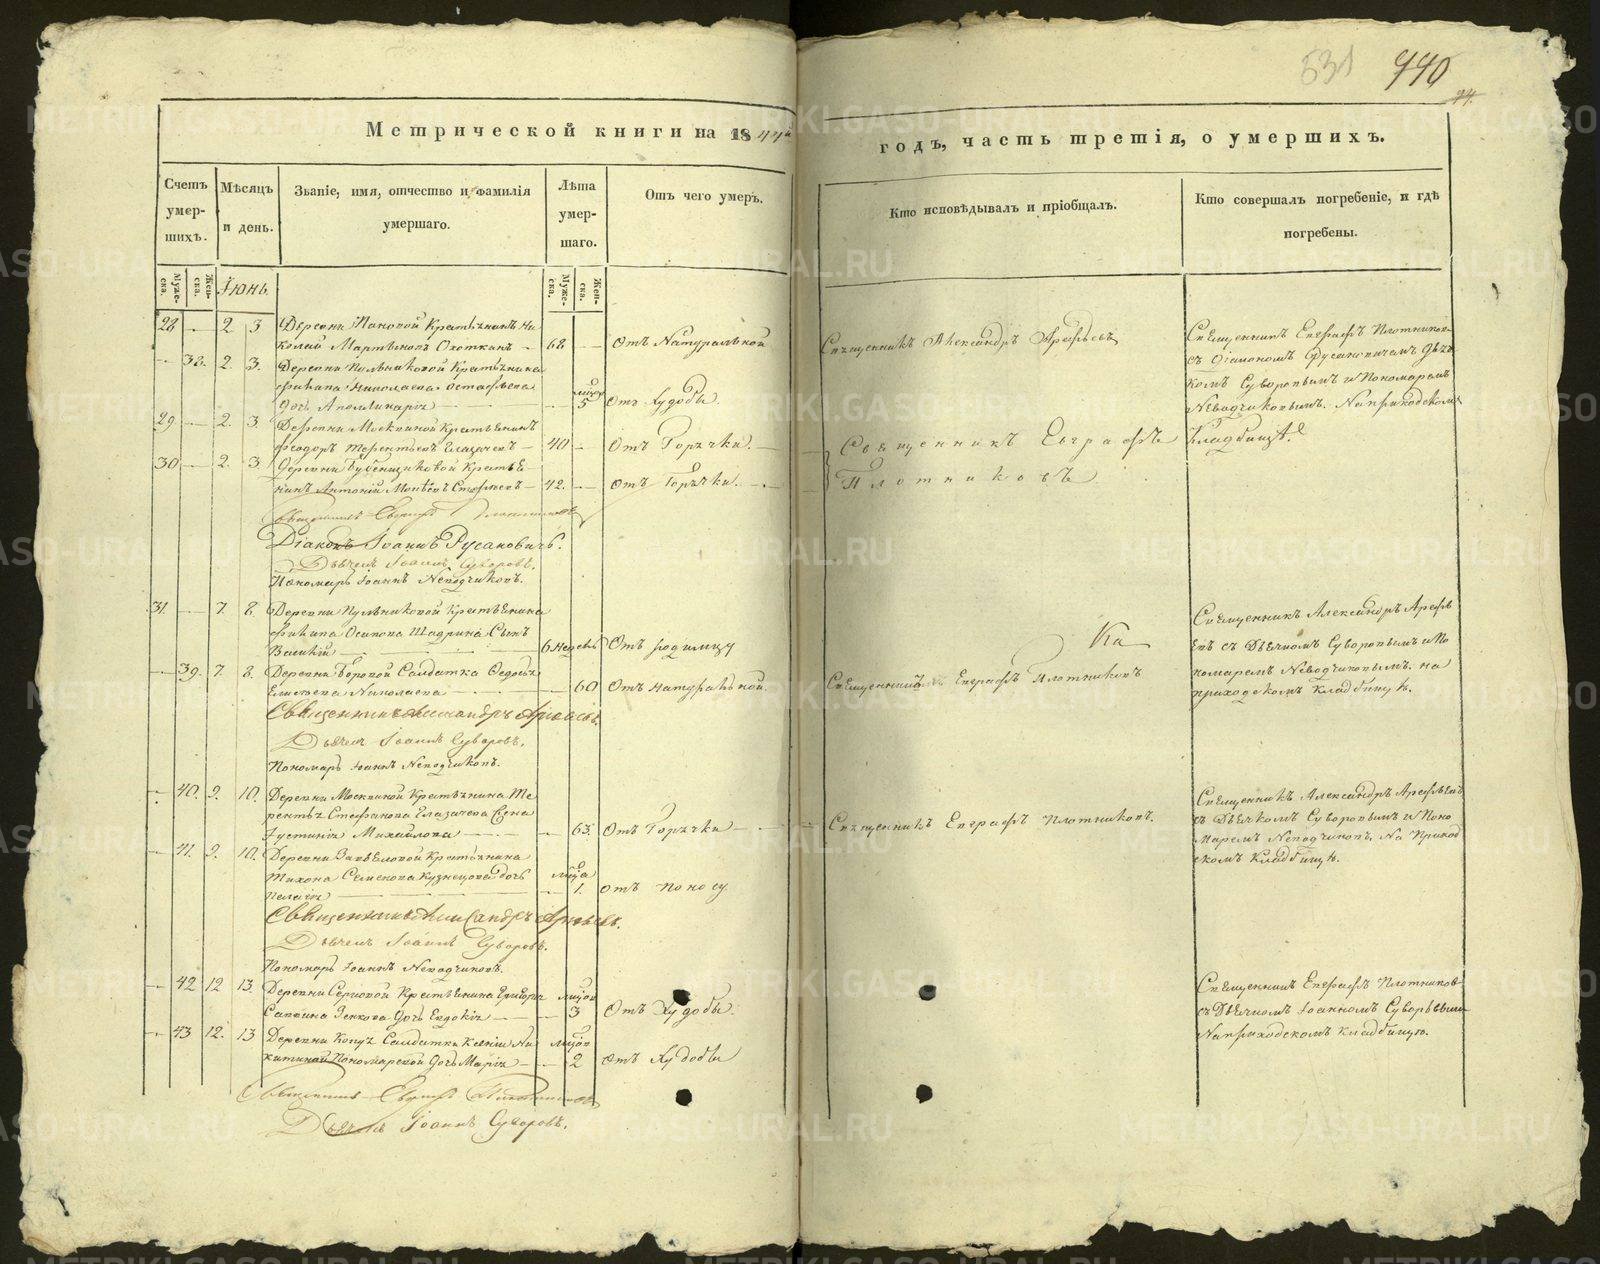 531 440
24.
Метрической книги на 1844й
годъ, часть третія, о умершихъ.
Счетъ умершихъ.
Мѣсяцъ и день.
Званіе, имя, отчество и фамилія умершаго.
Лѣта умершаго.
Отъ чего умеръ.
Кто исповѣдывалъ и пріобщалъ.
Кто совершалъ погребеніе, и гдѣ погребены.
Мужеска. Женска. Іюнь. Мужеска. Женска.
28 — 2 3 Деревни Пановой Крестьянинъ Ни-
колай Мартыновъ Охоткинъ — 68 — Отъ Натуральной
Священникъ Александръ Арефьевъ
— 38. 2. 3. Деревни Пульниковой Крестьянина
Филипа Николаева Остафьева
дочь — 5 Отъ Худобы
29 — 2. 3. Деревни Москвиной Крестьянинъ
Феодоръ Терентьевъ — 40 — Отъ Горячки. —
30 — 2. 3. Деревни Бубенщиковой Крестья-
нинъ Антоній — 42. — Отъ Горячки. —
Священникъ Евграфъ
Плотниковъ
Священникъ Евграфъ Плотников-
съ Діакономъ Русановичемъ Дьяч-
комъ Суворовымъ и Пономаремъ
Неводчиковымъ. На приходскомъ
Кладбищѣ.
Священникъ Евграфъ Плотниковъ
Діаконъ Іоаннъ Русановичъ.
Дьячекъ Іоаннъ Суворовъ.
Пономарь Іоаннъ Неводчиковъ.
31. — 7. 8. Деревни Пульниковой Крестьянина
Филипа Осипова Шадрина Сынъ
Василій — 6 недель Отъ родимцу
— 39. 7. 8. Деревни Боровой Салдатка Федосья
Елисѣева Николаева — 60 Отъ натуральной.
Священникъ Евграфъ Плотниковъ
Священникъ Александръ Арефь-
евъ съ Дьячкомъ Суворовымъ и По-
номаремъ Неводчиковымъ. на
приходскомъ Кладбищѣ.
Священникъ Александръ Арефьевъ.
Дьячекъ Іоаннъ Суворовъ.
Пономарь Іоаннъ Неводчиковъ.
— 40. 9. 10. Деревни Москвиной Крестьянина Те-
рентья Стефанова жена
Устинія Михайлова — 63. Отъ Горячки —
Священникъ Евграфъ Плотниковъ.
Священникъ Александръ Арефьевъ
съ Дьячкомъ Суворовымъ и Поно-
маремъ Неводчиковъ. На Приход-
скомъ Кладбищѣ.
— 41. 9. 10. Деревни Крестьянина
Тихона Семенова Кузнецова дочь
Пелагія — 1. Отъ поносу
Священникъ Александръ Арефьевъ.
Дьячекъ Іоаннъ Суворовъ.
Пономарь Іоаннъ Неводчиковъ.
— 42 12 13. Деревни Сериковой Крестьянина Григорья
дочь Евдокія — 3 Отъ Худобы.
— 43 12. 13 Деревни Копуч Салдатки Ксеніи Ни-
китиной Пономаревой дочь Марія — 2 Отъ Худобы
Священникъ Евграфъ Плотников-
съ Дьячкомъ Іоанномъ Суворовымъ
На приходскомъ Кладбищѣ.
Священникъ Евграфъ Плотниковъ
Дьячекъ Іоаннъ Суворовъ.